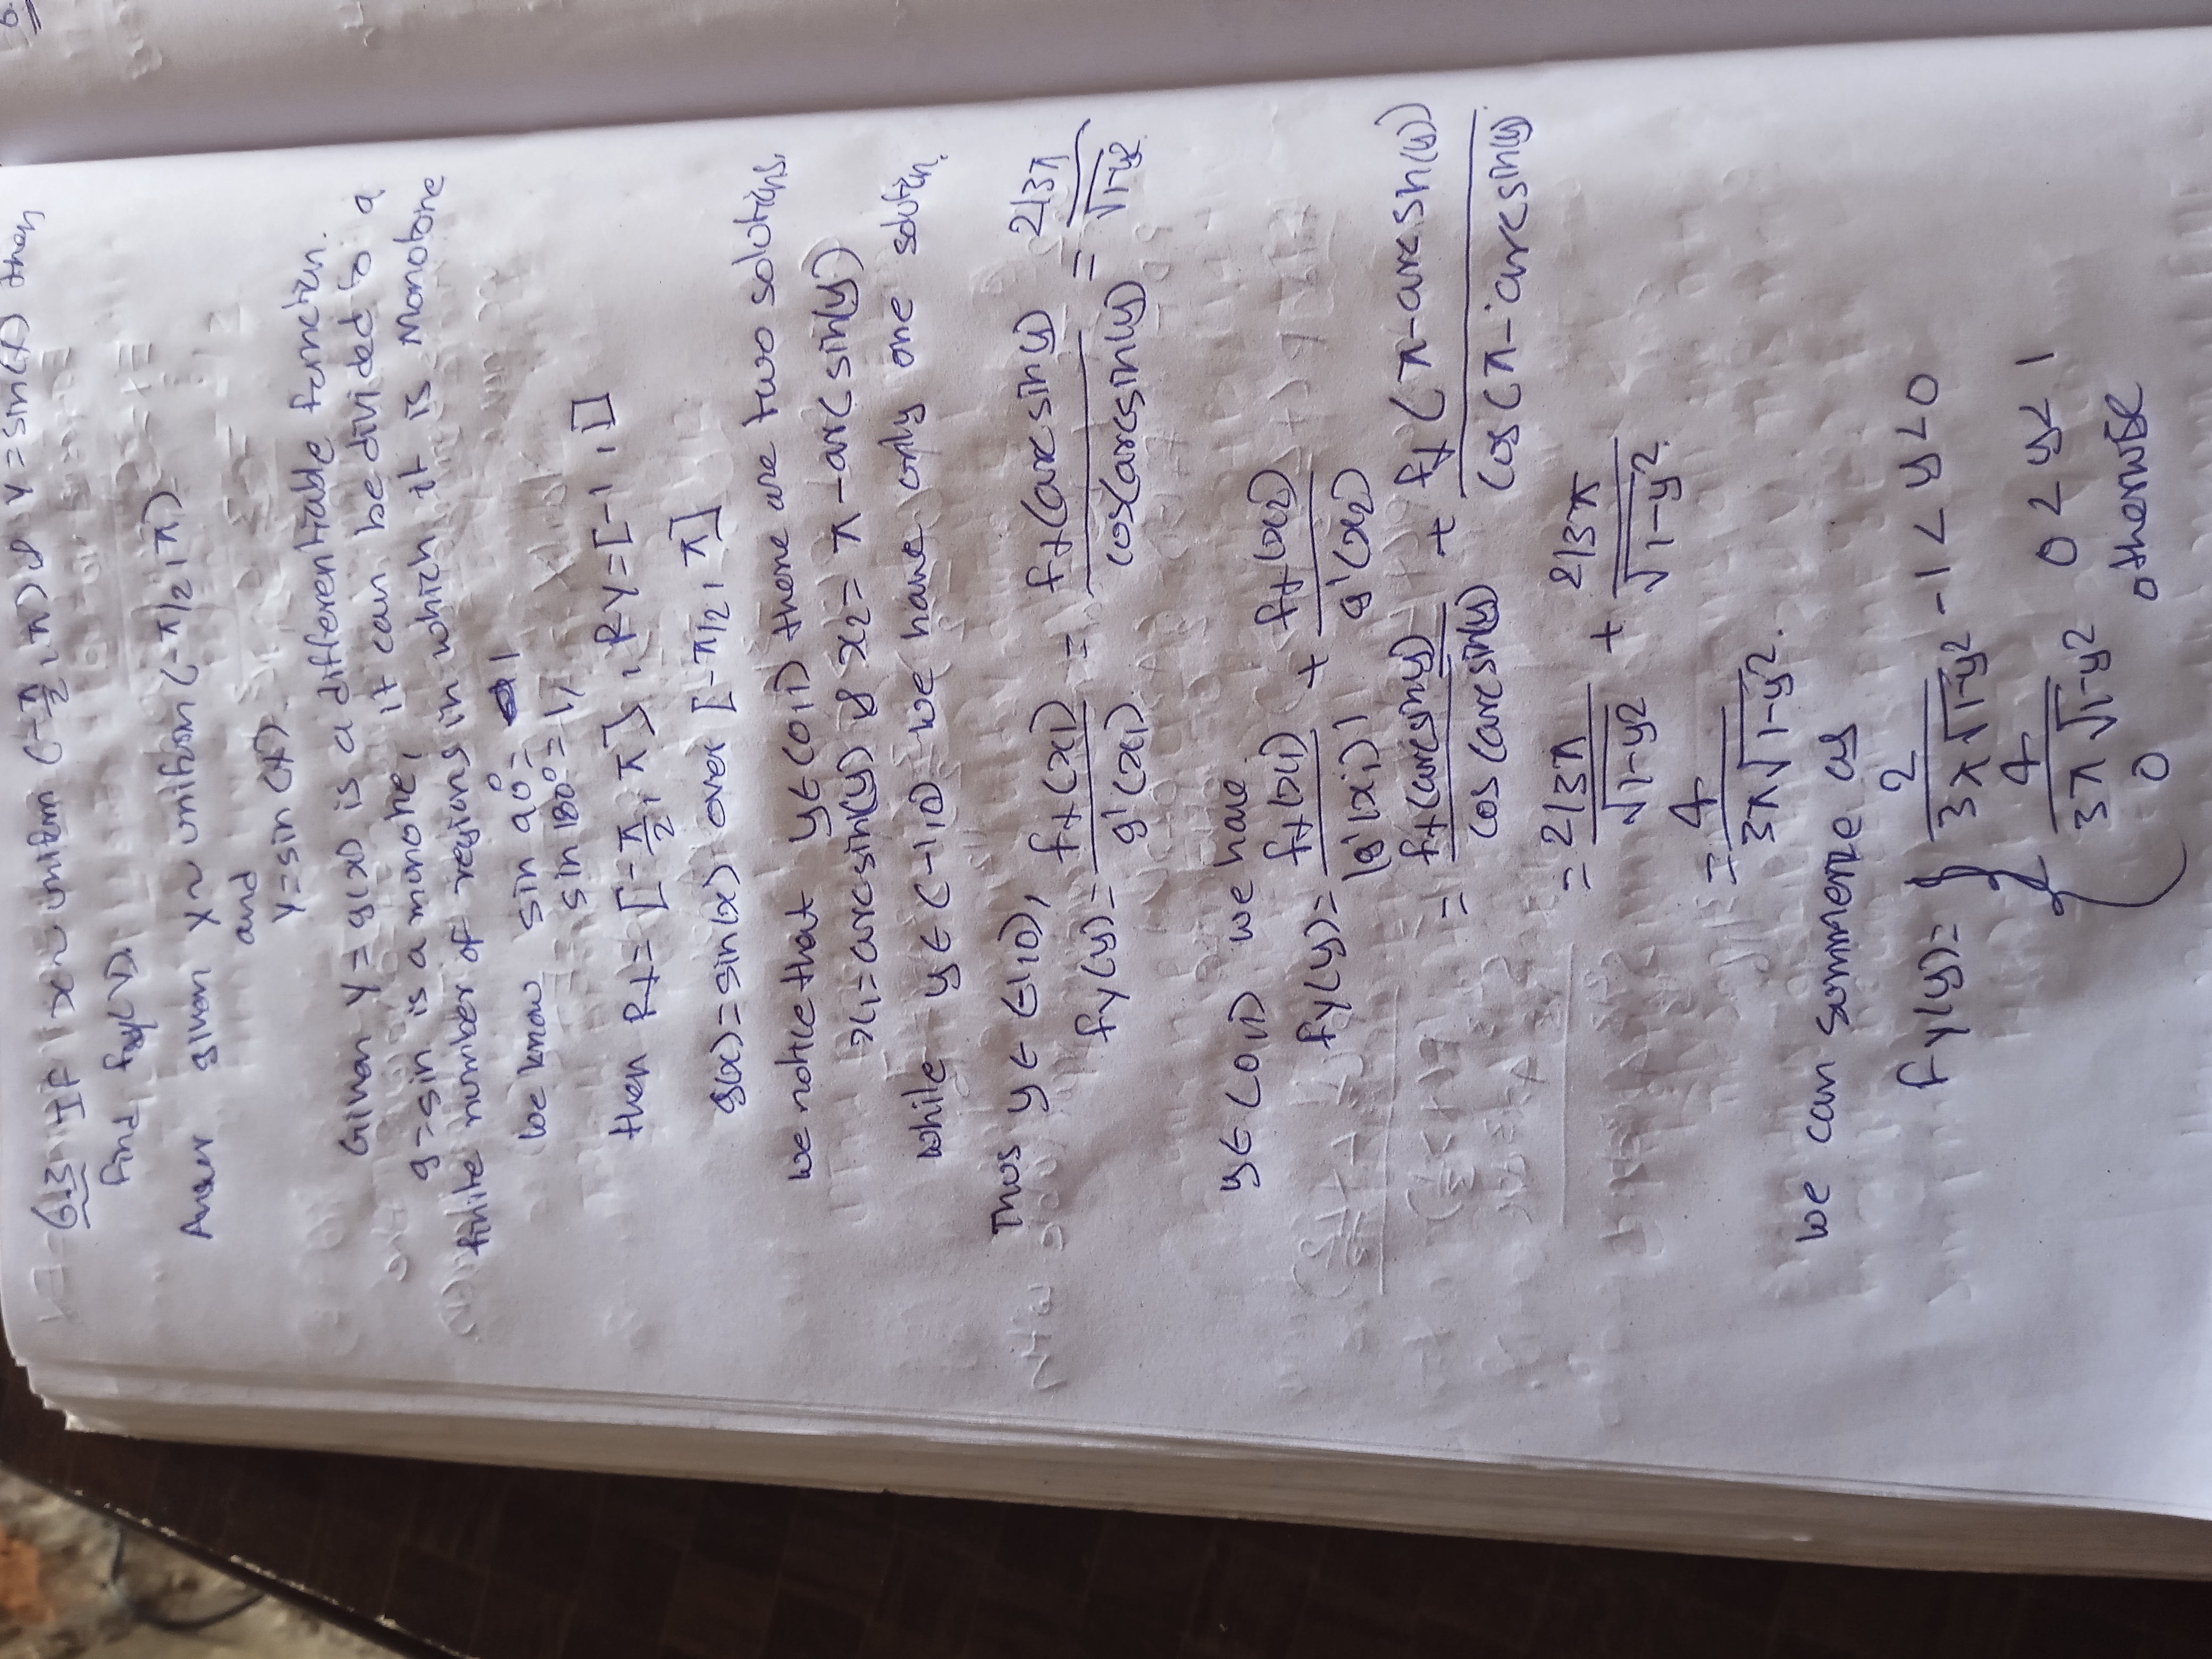 6.3 If x ~ uniform (-π/2, π) & Y = sin(x) then
find fy(y).
Answer given x ~ uniform (-π/2, π)
and
Y = sin(x).
Given Y = g(x) is a differentiable function.
g = sin is a monotone, it can be divided to a
finite number of regions in which it is monotone
we know sin 90° = 1
sin 180° = 1,
then Rx = [-π/2, π], RY = [-1, 1]
g(x) = sin(x) over [-π/2, π]
we notice that y ∈ (0,1) there are two solutions,
x1 = arcsin(y) & x2 = π - arc(sin(y)
while y ∈ (-1,0) we have only one solution.
Thus y ∈ (-1,0), fy(y) = fx(x1) / g'(x1) = fx(arcsiny) / cos(arcsin(y)) = 2/3π / √1-y2
y ∈ (0,1) we have
fy(y) = fx(x1) / |g'(x1)| + fx(x2) / g'(x2)
= fx(arcsiny) / cos(arcsin(y)) + fx(π-arcsin(y)) / cos(π-arcsin(y))
= 2/3π / √1-y2 + 2/3π / √1-y2
= 4 / 3π√1-y2.
we can summerize as
fy(y) = { 2 / 3π√1-y2 -1 < y < 0
4 / 3π√1-y2 0 < y < 1
0 otherwise